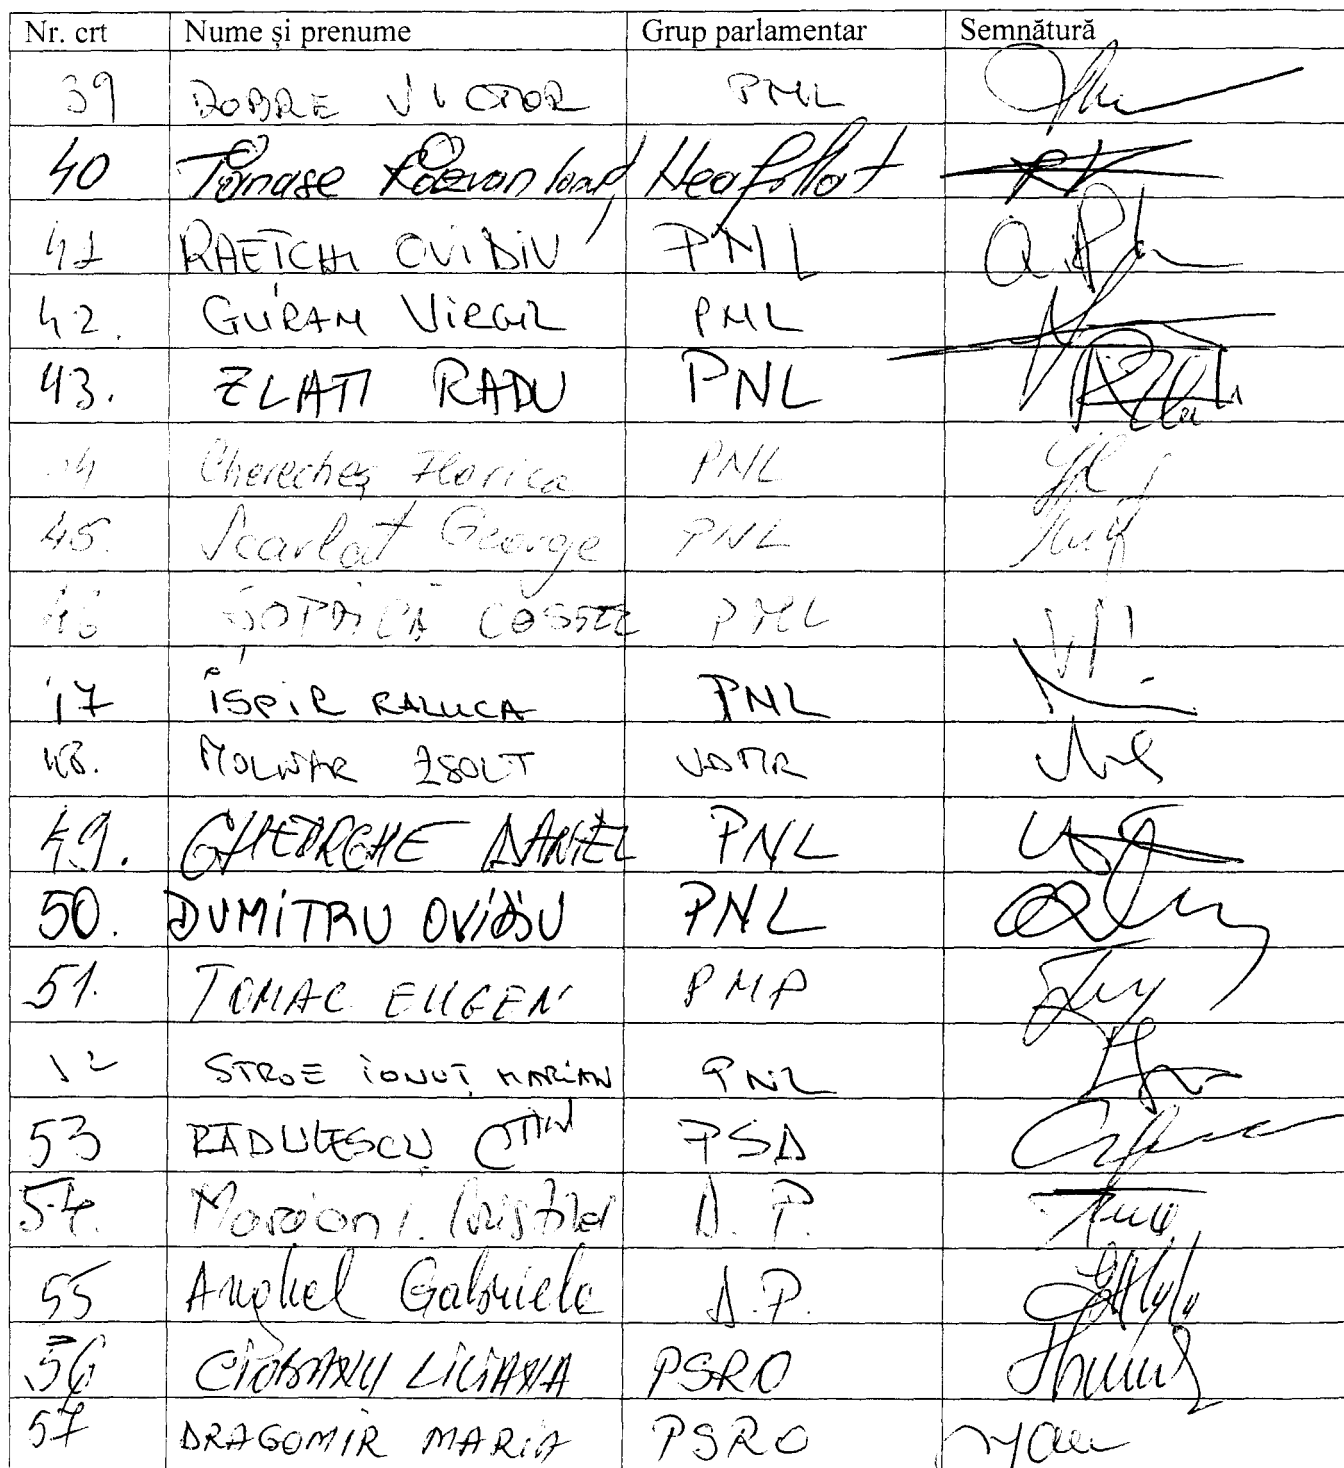 Nr. crt Nume și prenume Grup parlamentar Semnătură
39 DOBRE VICTOR PNL
40 Tănase Răzvan Ioan, Neafiliat
41 RAETCHI OVIDIU PNL
42. GURAN VIRGIL PNL
43. ZLATI RADU PNL
Cherecheș Florica PNL
45. Scarlat George PNL
46 ȘOPTICĂ COSTEL PNL
47 ISPIR RALUCA PNL
48. MOLNAR ZSOLT UDMR
49. GHEORGHE DANIEL PNL
50. DUMITRU OVIDIU PNL
51. TOMAC EUGEN PMP
52 STROE IONUȚ MARIAN PNL
53 RĂDULESCU CTIN PSD
54. A.P.
55 Anghel Gabriela A.P.
56 CIOBANU LILIANA PSRO
57 DRAGOMIR MARIA PSRO